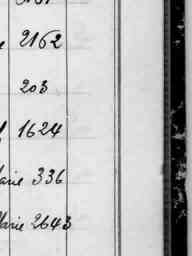 2162
203
1624
arie 336
Marie 2643